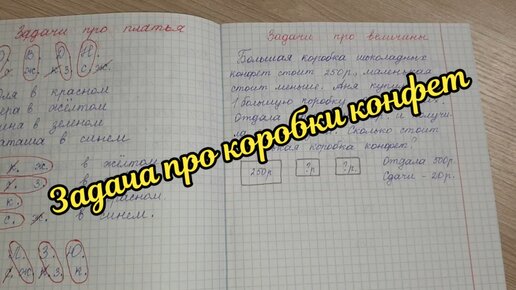 Задачи про платья
В. Д. Н.
ж. к з. с. ж.
в красном
в жёлтом
в зеленом
в синем
к. ж. в жёлтом
к. з.
к. красном
с. ж. в синем.
Л. З. Ю.
ж. к з. к.
Задачи про величины
Большая коробка шоколадных
конфет стоит 250р., маленькая
стоит меньше. Аня купи
1 большую коробку
Отдала р и получи
Сколько стоит
коробка конфет?
250р. ?р ?р. Отдала 500р.
Сдачи - 20р.
Задача про коробки конфет